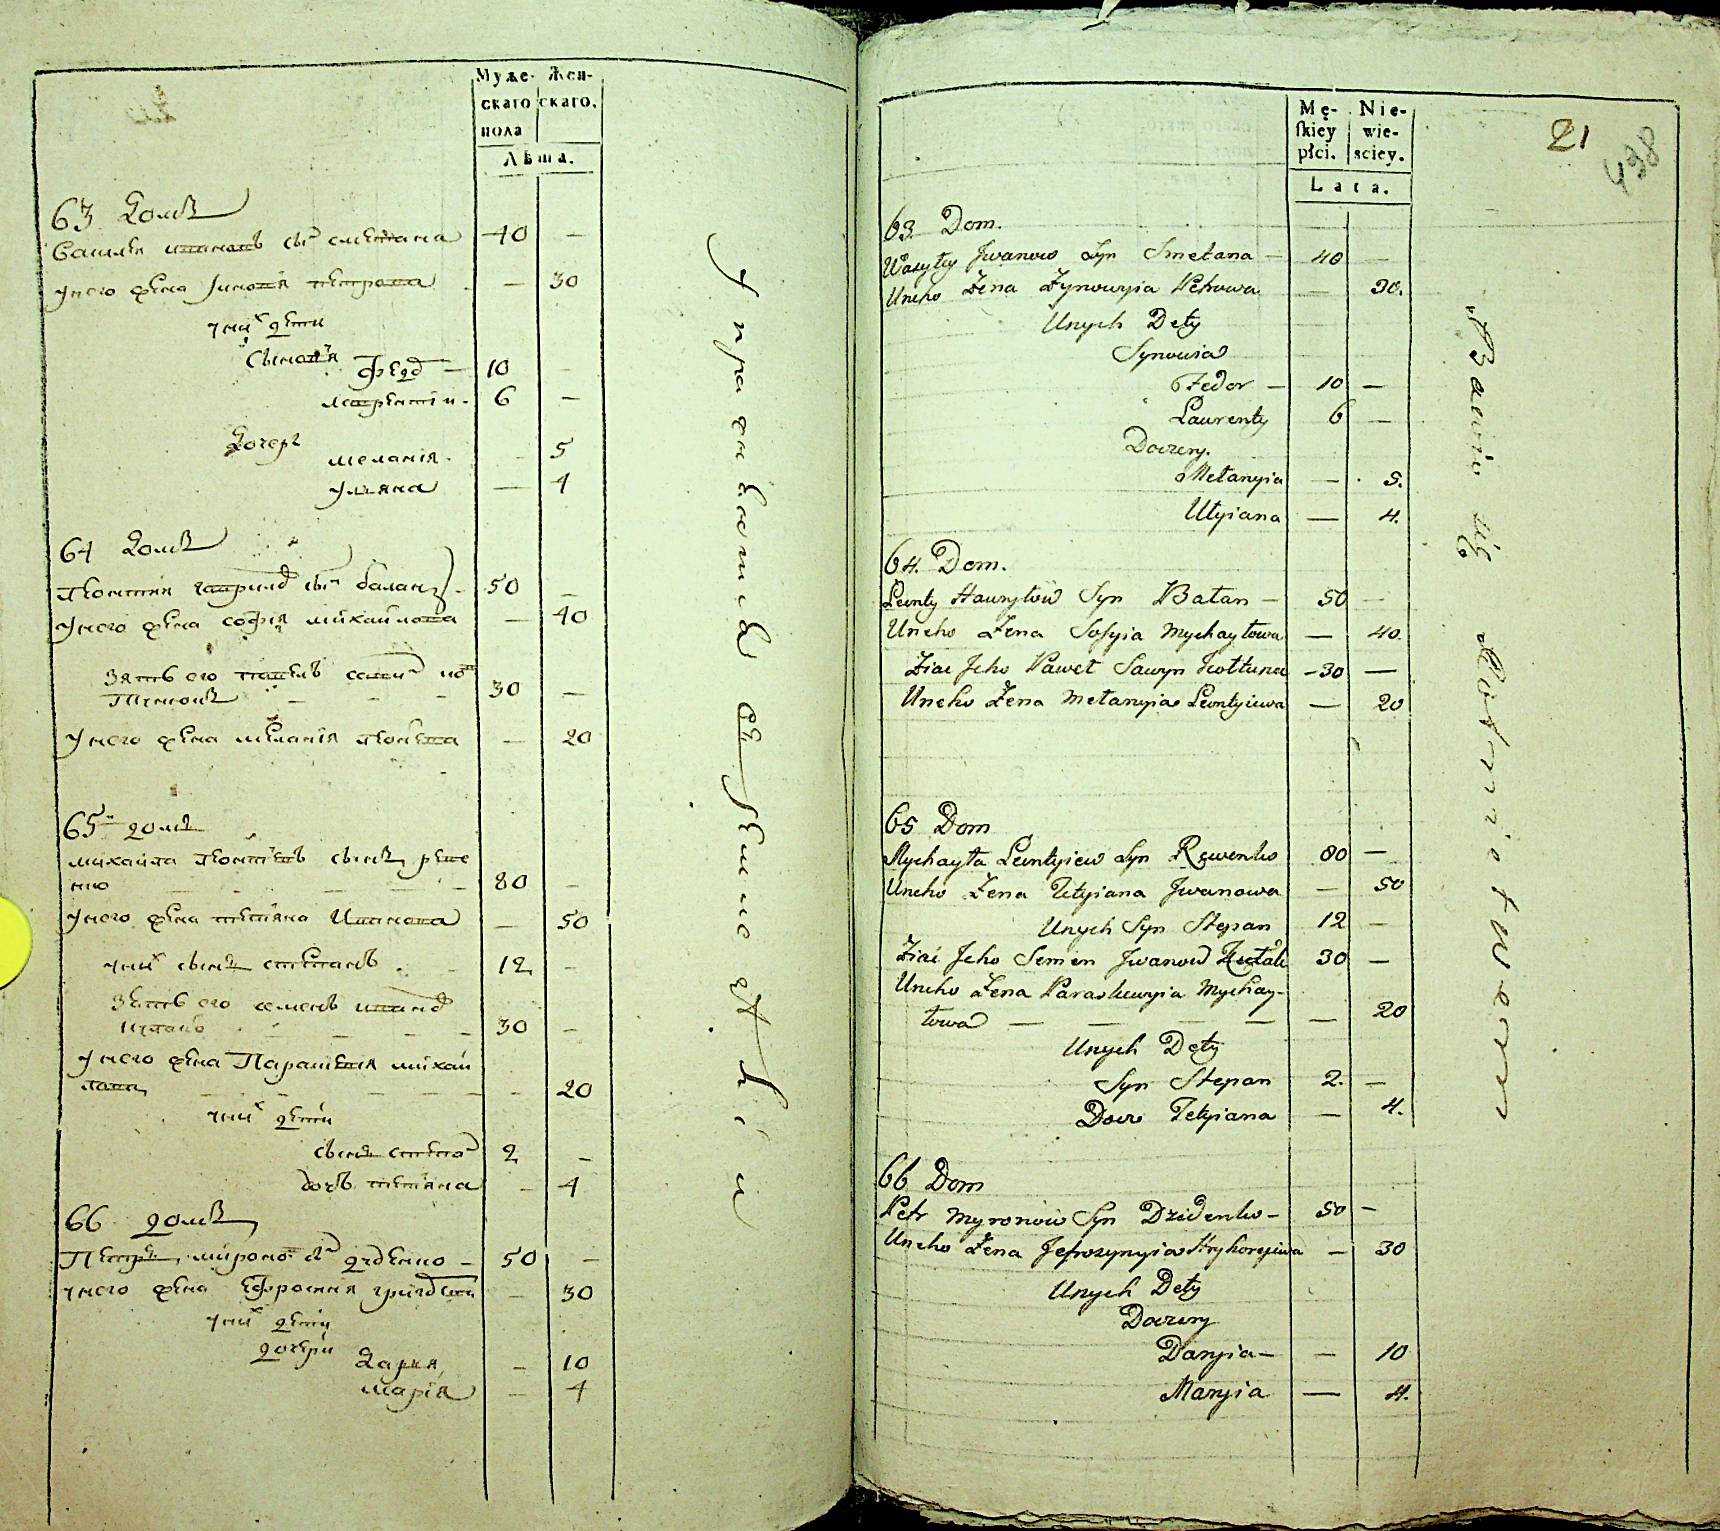 Муже-
скаго
пола
Жен-
скаго.
Лѣта.
63 Домъ
40 —
— 30
ихъ дети
Сыновя
Федо — 10 —
Лаврентіи - 6 —
Дочері
меланія - — 5
Уляна — 4
64 Домъ
Леонтия гаврилов сы балан - 50 —
У него жена софія михайлова — 40
Зять его павелъ
30 —
У него жена меланія леонт — 20
65 домъ
михайла леонтіевъ сынъ реве
нко 80 —
У него жена тетіяна Иванова — 50
у них сынъ степанъ - 12 —
Зять его семенъ иванов
30 —
У него жена Параскевия михаи
лова — 20
у них дети
сынъ степа 2 —
дочь тетіяна — 4
66 домъ
Петръ миронов сы диденко — 50 —
У него жена Ефросиния — 30
у них дети
дочери
Дарія — 10
марія — 4
21
438
Mę-
skiey
płci.
Nie-
wie-
sciey.
Lata.
63 Dom.
Wasyłey Jwanow Syn Smetana — 40 —
Uneho Żena Zynowyia Petrowa — 30.
Unych Dety
Synowia
Fedor — 10 —
Laurenty 6 —
Doczery.
Mełanyia — 5.
Ulyiana — 4.
64. Dom.
Leonty Hawryłow Syn Bałan — 50 —
Uneho Żena Sofyia Mychayłowa — 40.
Ziać Jeho Paweł Sawyn — 30 —
Uneho Żena Mełanyia Leontyiewa — 20
65 Dom
Mychayła Leontyiew Syn Rewenko 80 —
Uneho Żena Tetyiana Jwanowa — 50
Unych Syn Stepan 12 —
Ziać Jeho Semen Jwanow 30 —
Uneho Żena Paraskewyia Mychay-
łowa — — — — — 20
Unych Dety
Syn Stepan 2. —
Docz Tetyiana — 4.
66 Dom
Petr Myronow Syn Dzidenko — 50 —
Uneho Żena Jefrosynyia Hryhoryiwa — 30
Unych Dety
Doczery
Daryia — — 10
Maryia — 4.